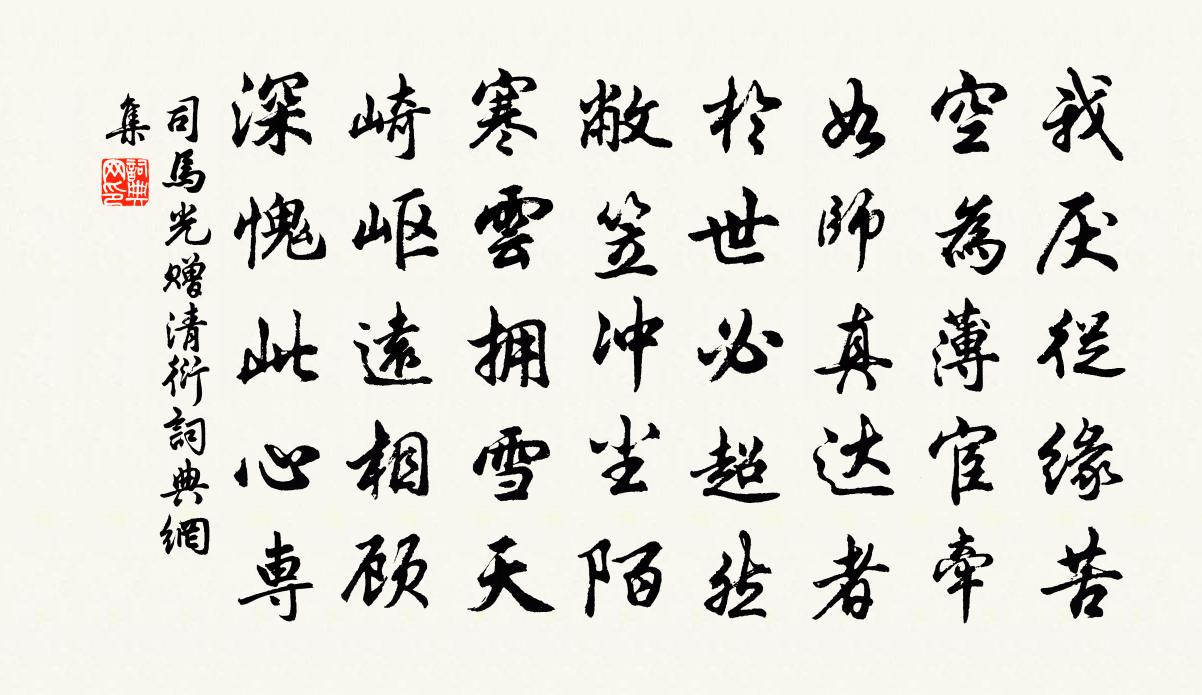 我厌從緣苦
空為薄宦牽
如師真达者
於世必超然
敝笠冲尘陌
寒雲拥雪天
崎岖遠相顾
深愧此心専
司馬光赠清衍詞典網
集
詞典
网印